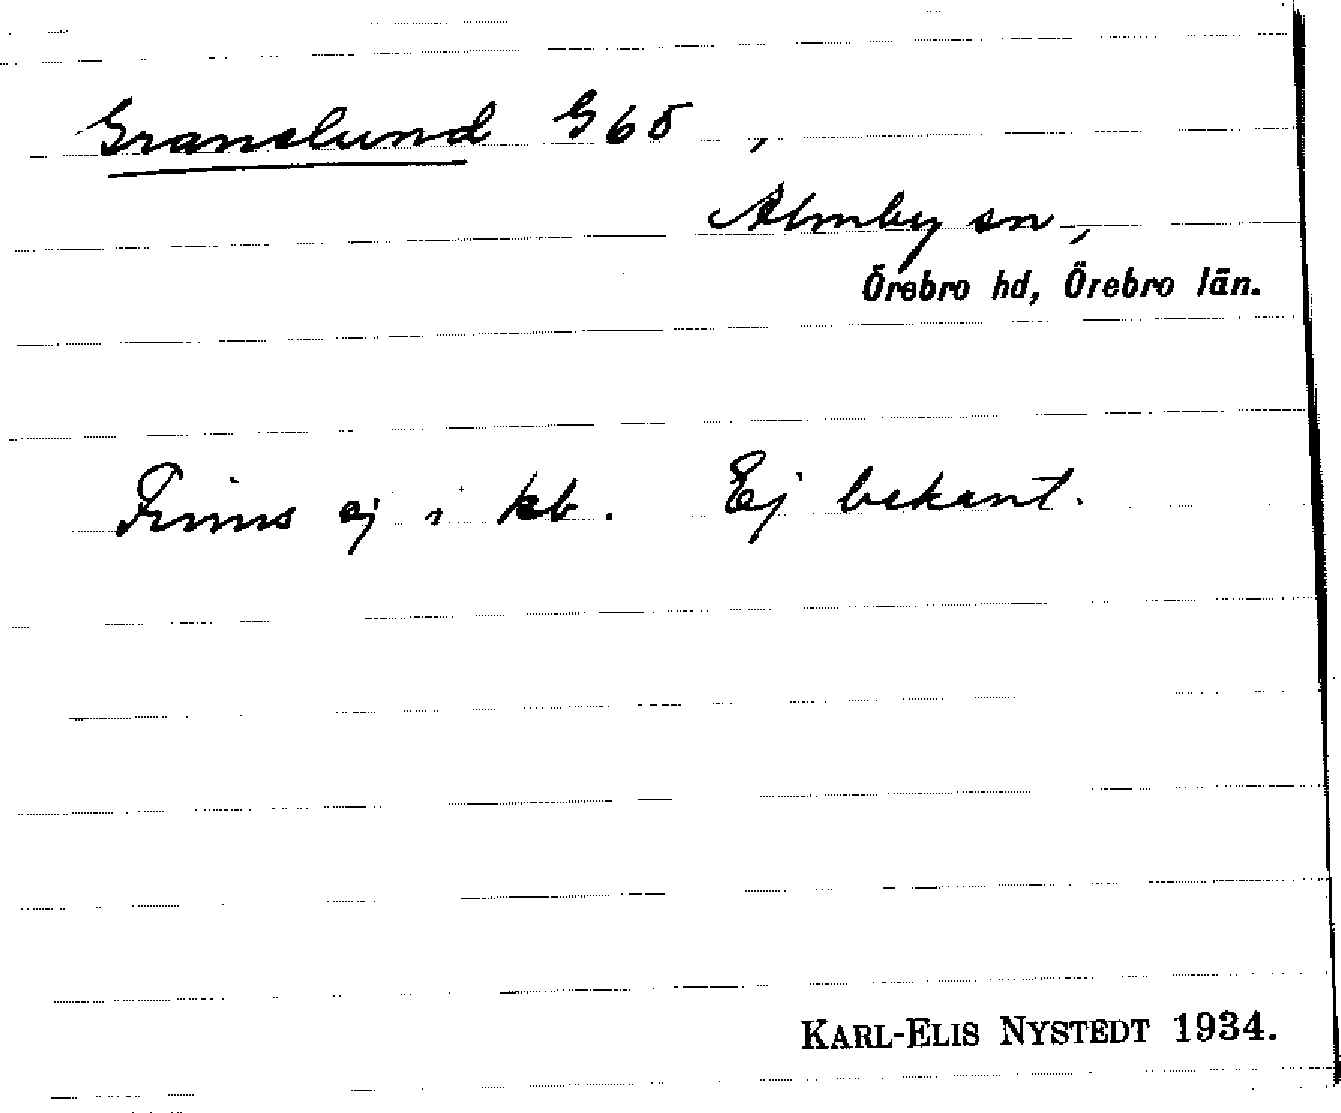 Granslund G65,
Almby sn,
Örebro hd, Örebro län.
Finns ej i kb. Ej bekant.
KARL-ELIS NYSTEDT 1934.